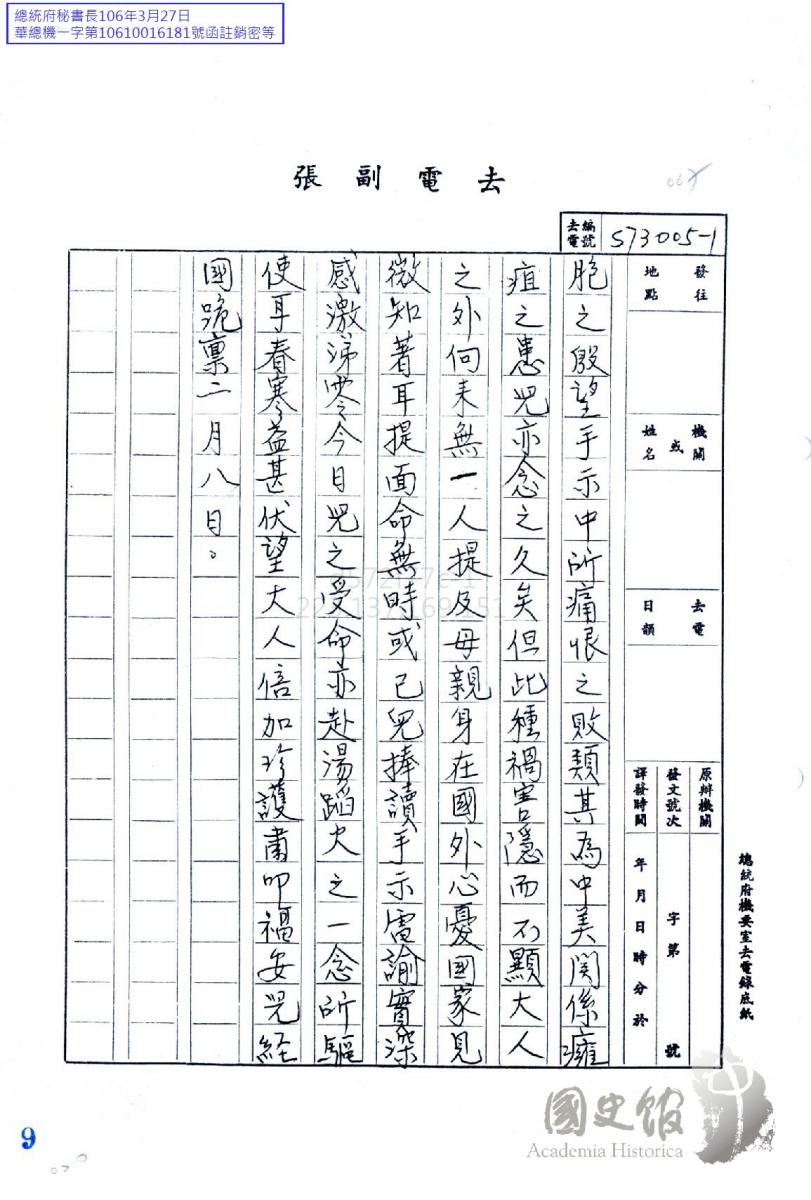 總統府秘書長106年3月27日
華總機一字第10610016181號函註銷密等
去電副張
去電編號 573005-1
發往地點
機關或姓名
去電日韻
原辦機關
發文號次 字第 號
譯發時間 年月日時分於
總統府機要室去電錄底紙
胞之殷望手示中所痛恨之敗類其為中美関係癰
疽之患児亦念之久矣但此種禍害隱而不顯大人
之外向来無一人提及母親身在國外心憂國家見
微知著耳提面命無時或已児捧讀手示電諭實深
感激涕零今日児之受命亦赴湯蹈火之一念所驅
使耳春寒益甚伏望大人倍加珍護肅叩福安児経
國跪稟二月八日。
9
國史館
Academia Historica